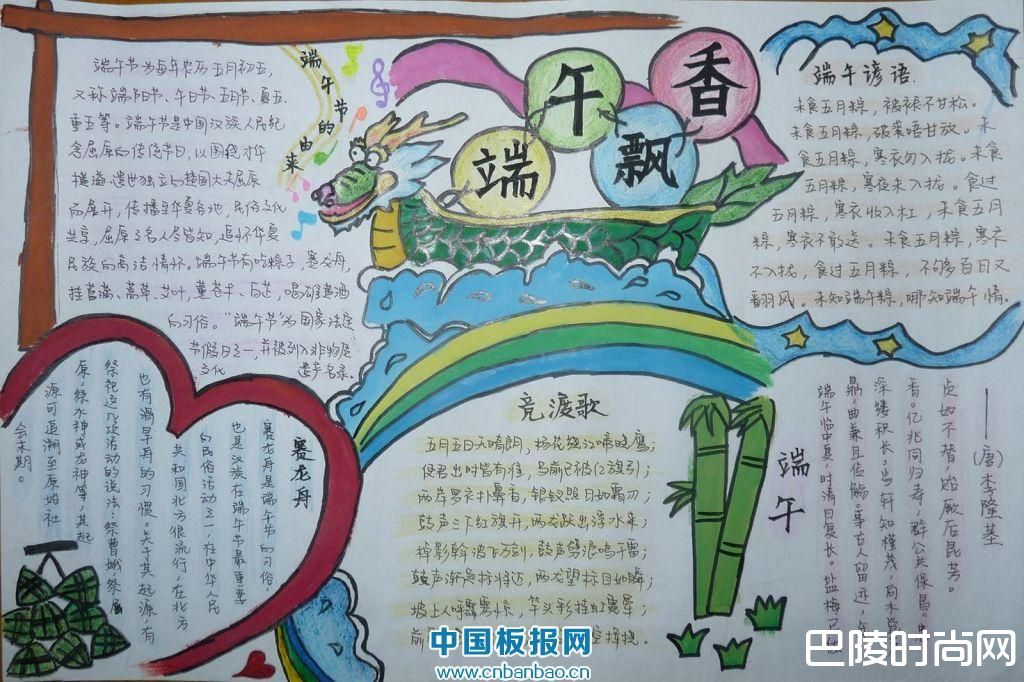 端午节的由来
端午节为每年农历五月初五,
又称端阳节、午日节、五月节、夏五、
重五等。端午节是中国汉族人民纪
念屈原的传统节日,以围绕才华
横溢、遗世独立的楚国大夫屈原
而展开,传播至华夏各地,民俗文化
共享,屈原之名人尽皆知,追怀华夏
民族的高洁情怀。端午节有吃粽子,赛龙舟,
挂菖蒲、蒿草、艾叶,薰苍术、白芷,喝雄黄酒
的习俗。“端午节”为国家法定
节假日之一,并被列入非物质
文化遗产名录。
端午飘香
端午谚语
未食五月粽,被褥不甘松。
未食五月粽,破裘唔甘放。未
食五月粽,寒衣勿入拢。未食
五月粽,寒夜未入拢。食过
五月粽,寒衣收入杠,未食五月
粽,寒衣不敢送。未食五月粽,寒衣
不入拢,食过五月粽,不够百日又
翻风。未知端午粽,哪知端午情。
赛龙舟
赛龙舟是端午节的习俗,
也是汉族在端午节最重要
的民俗活动之一,在中华人民
共和国北方很流行,在北方
也有滑旱舟的习惯。关于其起源,有
祭祀这几项活动的说法。祭曹娥,祭屈
原,祭水神或龙神等,其起
源可追溯至原始社
会末期。
竞渡歌
五月五日天晴朗,杨花绕江啼晓鹰;
使君出时皆有准,马前已被红旗引;
两岸罗衣扑鼻香,银钗照日如霜刃;
鼓声三下红旗开,两龙跃出浮水来;
棹影斡波飞万剑,鼓声劈浪鸣千雷;
鼓声渐急标将近,两龙望标目如瞬;
坡上人呼霹雳惊,竿头彩挂虹霓晕;
端午
——(唐)李隆基
端午临中夏,时清日复长。盐梅已
鼎,曲糵且传觞。事古人留迹,年
深缕积长。当轩知槿茂,向水觉
香。亿兆同归寿,群公共保昌。
贞如不替,贻厥后昆芳。
中国板报网
www.cnbanbao.cn
巴陵时尚网